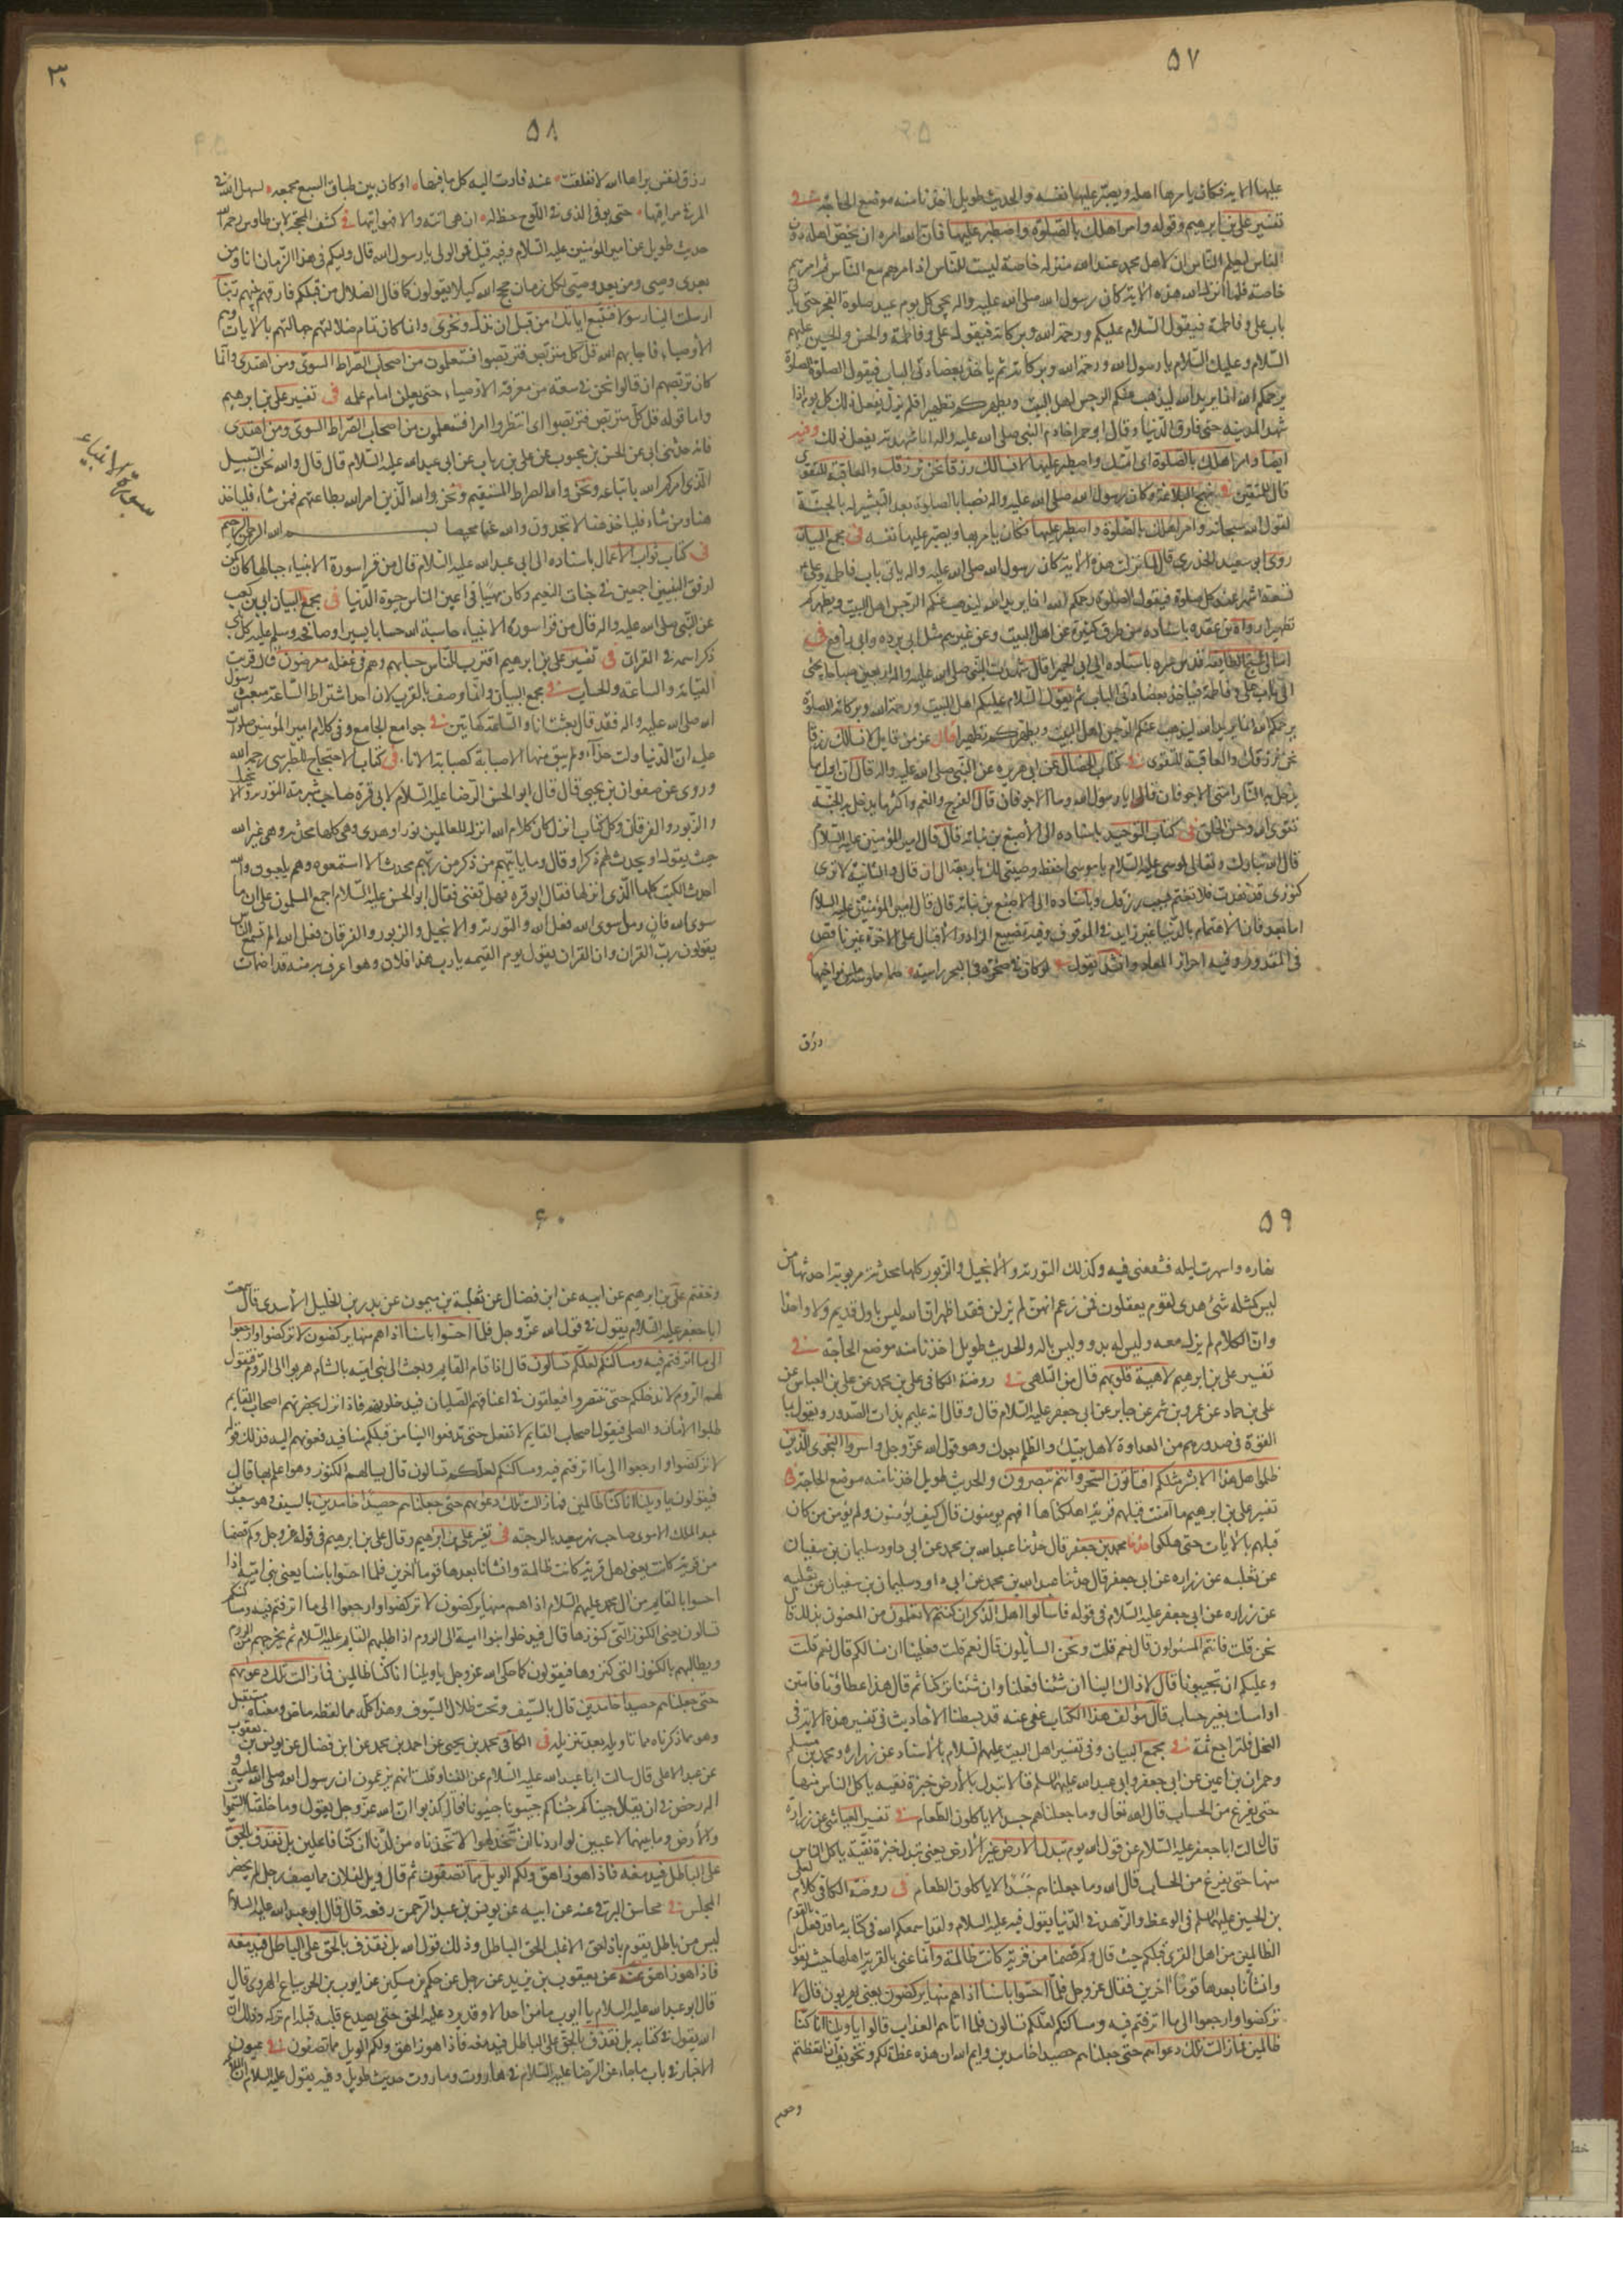 ٥٧
عليها الاية فكان يامر بها اهله ويصبر عليها نفسه والحديث طويل اخذنا منه موضع الحاجة فى
تفسير على بن ابرهيم وقوله وامر اهلك بالصلوة واصطبر عليها فان الله امره ان يخص اهله دون
الناس ليعلم الناس ان لاهل محمد عند الله منزلة خاصة ليست للناس اذ امرهم مع الناس ثم امرهم
خاصة فلما انزل الله هذه الاية كان رسول الله صلى الله عليه واله يجئ كل يوم عند صلوة الفجر حتى ياتى
باب على وفاطمة فيقول السلام عليكم ورحمة الله وبركاته فيقول على وفاطمة والحسن والحسين عليهم
السلام وعليك السلام يا رسول الله ورحمة الله وبركاته ثم ياخذ بعضادتى الباب فيقول الصلوة الصلوة
يرحمكم الله انما يريد الله ليذهب عنكم الرجس اهل البيت ويطهركم تطهيرا فلم يزل يفعل ذلك كل يوم اذا
شهد المدينة حتى فارق الدنيا وقال ابو حمرا خادم النبى صلى الله عليه واله انا شهدته يفعل ذلك وفيه
ايضا وامر اهلك بالصلوة اى امتك واصطبر عليها لا نسالك رزقا نحن نرزقك والعاقبة للتقوى
قال للمتقين فى نهج البلاغة وكان رسول الله صلى الله عليه واله نصبا بالصلوة بعد التبشير له بالجنة
لقول الله سبحانه وامر اهلك بالصلوة واصطبر عليها فكان يامر بها ويصبر عليها نفسه فى مجمع البيان
روى ابو سعيد الخدرى قال لما نزلت هذه الاية كان رسول الله صلى الله عليه واله ياتى باب فاطمة وعلى
تسعة اشهر عند كل صلوة فيقول الصلوة رحمكم الله انما يريد الله ليذهب عنكم الرجس اهل البيت ويطهركم
تطهيرا رواه بن عقدة باسناده من طرق كثيرة عن اهل البيت وعن غيرهم مثل ابى برده وابى رافع فى
امالى شيخ الطائفة قدس سره باسناده الى ابى الحمرا قال شهدت النبى صلى الله عليه واله اربعين صباحا يجئ
الى باب على وفاطمة فياخذ بعضادتى الباب ثم يقول السلام عليكم اهل البيت ورحمة الله وبركاته الصلوة
يرحمكم الله انما يريد الله ليذهب عنكم الرجس اهل البيت ويطهركم تطهيرا قال عز من قايل لا نسالك رزقا
نحن نرزقك والعاقبة للتقوى فى كتاب الخصال عن ابى هريرة عن النبى صلى الله عليه واله قال ان اول ما
يدخل به النار امتى الاجوفان قالوا يا رسول الله وما الاجوفان قال الفرج والفم واكثر ما يدخل به الجنة
تقوى الله وحسن الخلق فى كتاب التوحيد باسناده الى الاصبغ بن نباتة قال قال امير المؤمنين عليه السلام
قال الله تبارك وتعالى لموسى عليه السلام يا موسى احفظ وصيتى لك باربعة الى ان قال والثانية لا ترى
كنوزى قد نفدت فلا تغتم بسبب رزقك وباسناده الى الاصبغ بن نباتة قال قال امير المؤمنين عليه السلام
اما بعد فان الاهتمام بالدنيا غير زايد فى الموقوف وفيه تضييع الزاد والاقبال على الاخرة غير ناقص
فى المقدور وفيه احراز المعاد وانشد يقول لو كان فى صخرة فى البحر راسية صما ململمة ملس نواحيها
رزق
٥٨
رزق لنفس براها الله لانفلقت عنه فادت اليه كل ما فيها او كان بين طباق السبع مجمعه لسهل الله فى
المرقى مراقيها حتى يوفى الذى فى اللوح خط له ان هى اتته والا فهو اتيها فى كشف المحجة لابن طاوس رحمه الله
حديث طويل عن امير المؤمنين عليه السلام وفيه قيل فمن الولى يا رسول الله قال وليكم فى هذا الزمان انا ومن
بعدى وصيى ومن بعد وصيى لكل زمان حجج الله كيلا يقولون كما قال الضلال من قبلكم فارقهم نبيهم ربنا
ارسلت الينا رسولا فنتبع اياتك من قبل ان نذل ونخزى وانما كان تمام ضلالتهم جهالتهم بالايات وهم
الاوصياء فاجابهم الله قل كل متربص فتربصوا فستعلمون من اصحاب الصراط السوى ومن اهتدى وانما
كان تربصهم ان قالوا نحن فى سعة من معرفة الاوصياء حتى يعلن امام علمه فى تفسير على بن ابرهيم
واما قوله قل كل متربص فتربصوا اى انتظروا امرا فستعلمون من اصحاب الصراط السوى ومن اهتدى
فانه حدثنى ابى عن الحسن بن محبوب عن على بن رياب عن ابى عبد الله عليه السلام قال قال والله نحن السبيل
الذى امركم الله باتباعه ونحن والله الصراط المستقيم ونحن والله الذين امر الله بطاعتهم فمن شاء فلياخذ
هنا ومن شاء فلياخذ هنا لا تجدون والله عنا محيصا بسم الله الرحمن الرحيم
فى كتاب ثواب الاعمال باسناده الى ابى عبد الله عليه السلام قال من قرا سورة الانبياء حبا لها كان كمن
ارفق النبيين اجمعين فى جنات النعيم وكان مهيبا فى اعين الناس حيوة الدنيا فى مجمع البيان ابى بن كعب
عن النبى صلى الله عليه واله قال من قرا سورة الانبياء حاسبه الله حسابا يسيرا وصافحه وسلم عليه كل نبى
ذكر اسمه فى القران فى تفسير على بن ابرهيم اقترب للناس حسابهم وهم فى غفلة معرضون قال قربت
القيامة والساعة والحساب فى مجمع البيان وانما وصف بالقرب لان احد اشراط الساعة مبعث رسول
الله صلى الله عليه واله فقد قال بعثت انا والساعة كهاتين فى جوامع الجامع وفى كلام امير المؤمنين صلوات الله
عليه ان الدنيا ولت حذاء ولم يبق منها الا صبابة كصبابة الاناء فى كتاب الاحتجاج للطبرسى رحمه الله
وروى عن صفوان بن يحيى قال قال ابو الحسن الرضا عليه السلام لابى قرة صاحب شبرمة التورية والانجيل
والزبور والفرقان وكل كتاب انزل كان كلام الله انزله للعالمين نورا وهدى وهى كلها محدثة وهى غير الله
حيث يقول او يحدث لهم ذكرا وقال وما ياتيهم من ذكر من ربهم محدث الا استمعوه وهم يلعبون والله
احدث الكتب كلها الذى انزلها فقال ابو قرة فهل تفنى فقال ابو الحسن عليه السلام اجمع المسلمون على ان ما
سوى الله فان وما سوى الله فعل الله والتورية والانجيل والزبور والفرقان فعل الله الم تسمع الناس
يقولون رب القران وان القران يقول يوم القيمة يا رب هذا فلان وهو اعرف به منه قد اظمات
سورة الانبياء
٥٩
نهاره واسهرت ليله فشفعنى فيه وكذلك التورية والانجيل والزبور كلها محدثة مربوبة احدثها من
ليس كمثله شئ هدى لقوم يعقلون فمن زعم انهن لم يزلن فقد اظهر ان الله ليس باول قديم ولا واحد
وان الكلام لم يزل معه وليس له بدو وليس باله والحديث طويل اخذنا منه موضع الحاجة فى
تفسير على بن ابرهيم لاهية قلوبهم قال من التلهى فى روضة الكافى على بن محمد عن على بن العباس عن
على بن حماد عن عمرو بن شمر عن جابر عن ابى جعفر عليه السلام قال وقال انه عليم بذات الصدور ويقول بما
القوه فى صدورهم من العداوة لاهل بيتك والظلم بعدك وهو قول الله عز وجل واسروا النجوى الذين
ظلموا هل هذا الا بشر مثلكم افتاتون السحر وانتم تبصرون والحديث طويل اخذنا منه موضع الحاجة فى
تفسير على بن ابرهيم ما امنت قبلهم من قرية اهلكناها افهم يؤمنون قال كيف يؤمنون ولم يؤمن من كان
قبلهم بالايات حتى هلكوا حدثنا محمد بن جعفر قال حدثنا عبد الله بن محمد عن ابى داود سليمان بن سفيان
عن ثعلبه عن زراره عن ابى جعفر قال حدثنا عبد الله بن محمد عن ابى داود سليمان بن سفيان عن ثعلبه
عن زراره عن ابى جعفر عليه السلام فى قوله فاسالوا اهل الذكر ان كنتم لا تعلمون من المعنون بذلك قال
نحن قلت فانتم المسئولون قال نعم قلت ونحن السايلون قال نعم قلت فعلينا ان نسالكم قال نعم قلت
وعليكم ان تجيبونا قال لا ذاك الينا ان شئنا فعلنا وان شئنا تركنا ثم قال هذا عطاؤنا فامنن
او امسك بغير حساب قال مؤلف هذا الكتاب عفى عنه قد بسطنا الاحاديث فى تفسير هذه الاية فى
النحل فلتراجع ثمة فى مجمع البيان وفى تفسير اهل البيت عليهم السلام بالاسناد عن زراره ومحمد بن مسلم
وحمران بن اعين عن ابى جعفر وابى عبد الله عليهما السلم قالا تبدل الارض خبزة نقية ياكل الناس منها
حتى يفرغ من الحساب قال الله تعالى وما جعلناهم جسدا لا ياكلون الطعام فى تفسير العياشى عن زراره
قال سالت ابا جعفر عليه السلام عن قول الله يوم تبدل الارض غير الارض يعنى تبدل خبزة نقية ياكل الناس
منها حتى يفرغ من الحساب قال الله وما جعلناهم جسدا لا ياكلون الطعام فى روضة الكافى كلام لعلى
بن الحسين عليهما السلم فى الوعظ والزهد فى الدنيا يقول فيه عليه السلام ولقد اسمعكم الله فى كتابه ما قد فعل بالقوم
الظالمين من اهل القرى قبلكم حيث قال وكم قصمنا من قرية كانت ظالمة وانما عنى بالقرية اهلها حيث يقول
وانشانا بعدها قوما اخرين فقال عز وجل فلما احسوا باسنا اذا هم منها يركضون يعنى يهربون قال لا
تركضوا وارجعوا الى ما اترفتم فيه ومساكنكم لعلكم تسالون فلما اتاهم العذاب قالوا يا ويلنا انا كنا
ظالمين فما زالت تلك دعواهم حتى جعلناهم حصيدا خامدين وايم الله ان هذه عظة لكم وتخويف ان اتعظتم
وخفتم
٦٠
وخفتم على بن ابرهيم عن ابيه عن ابن فضال عن ثعلبة بن ميمون عن بدر بن الخليل الاسدى قال سمعت
ابا جعفر عليه السلام يقول فى قول الله عز وجل فلما احسوا باسنا اذا هم منها يركضون لا تركضوا وارجعوا
الى ما اترفتم فيه ومساكنكم لعلكم تسالون قال اذا قام القايم وبعث الى بنى امية بالشام هربوا الى الروم فيقول
لهم الروم لا ندخلكم حتى تتنصروا فيعلقون فى اعناقهم الصلبان فيدخلونهم فاذا نزل بحضرتهم اصحاب القايم
طلبوا الامان والصلح فيقول اصحاب القايم لا نفعل حتى تدفعوا الينا من قبلكم منا فيدفعونهم اليه فذلك قوله
لا تركضوا وارجعوا الى ما اترفتم فيه ومساكنكم لعلكم تسالون قال يسالهم الكنوز وهو اعلم بها قال
فيقولون يا ويلنا انا كنا ظالمين فما زالت تلك دعواهم حتى جعلناهم حصيدا خامدين بالسيف وهو سعيد بن
عبد الملك الاموى صاحب نهر سعيد بالرحبة فى تفسير على بن ابرهيم وقال على بن ابرهيم فى قوله عز وجل وكم قصمنا
من قرية كانت يعنى اهل قرية كانت ظالمة وانشانا بعدها قوما اخرين فلما احسوا باسنا يعنى بنى امية اذا
احسوا بالقايم من ال محمد عليهم السلام اذا هم منها يركضون لا تركضوا وارجعوا الى ما اترفتم فيه ومساكنكم
تسالون يعنى الكنوز التى كنزوها قال فيدخلوا بنوا امية الى الروم اذا طلبهم القايم عليه السلام ثم يخرجهم من الروم
ويطالبهم بالكنوز التى كنزوها فيقولون كما حكى الله عز وجل يا ويلنا انا كنا ظالمين فما زالت تلك دعويهم
حتى جعلناهم حصيدا خامدين قال بالسيف وتحت ظلال السيوف وهذا كله مما لفظه ماض ومعناه مستقبل
وهو مما ذكرناه مما تاويله بعد تنزيله فى الكافى محمد بن يحيى عن احمد بن محمد عن ابن فضال عن يونس بن يعقوب
عن عبد الاعلى قال سالت ابا عبد الله عليه السلام عن الغنا وقلت انهم يزعمون ان رسول الله صلى الله عليه و
اله رخص فى ان يقال جيناكم جئناكم حيونا حيونا فقال كذبوا ان الله عز وجل يقول وما خلقنا السموات
والارض وما بينهما لاعبين لو اردنا ان نتخذ لهوا لاتخذناه من لدنا ان كنا فاعلين بل نقذف بالحق
على الباطل فيدمغه فاذا هو زاهق ولكم الويل مما تصفون ثم قال ويل لفلان مما يصف رجل لم يحضر
المجلس فى محاسن البرقى عنه عن ابيه عن يونس بن عبد الرحمن رفعه قال قال ابو عبد الله عليه السلام
ليس من باطل يقوم بازاء الحق الا غلب الحق الباطل وذلك قول الله بل نقذف بالحق على الباطل فيدمغه
فاذا هو زاهق عنه عن يعقوب بن يزيد عن رجل عن حكم بن مسكين عن ايوب بن الحر بياع الهروى قال
قال ابو عبد الله عليه السلام يا ايوب ما من احد الا وقد يرد عليه الحق حتى يصدع قلبه قبله ام تركه وذلك ان
الله يقول فى كتابه بل نقذف بالحق على الباطل فيدمغه فاذا هو زاهق ولكم الويل مما تصفون فى عيون
الاخبار فى باب ما جاء عن الرضا عليه السلام فى هاروت وماروت حديث طويل وفيه يقول عليه السلام ان الله